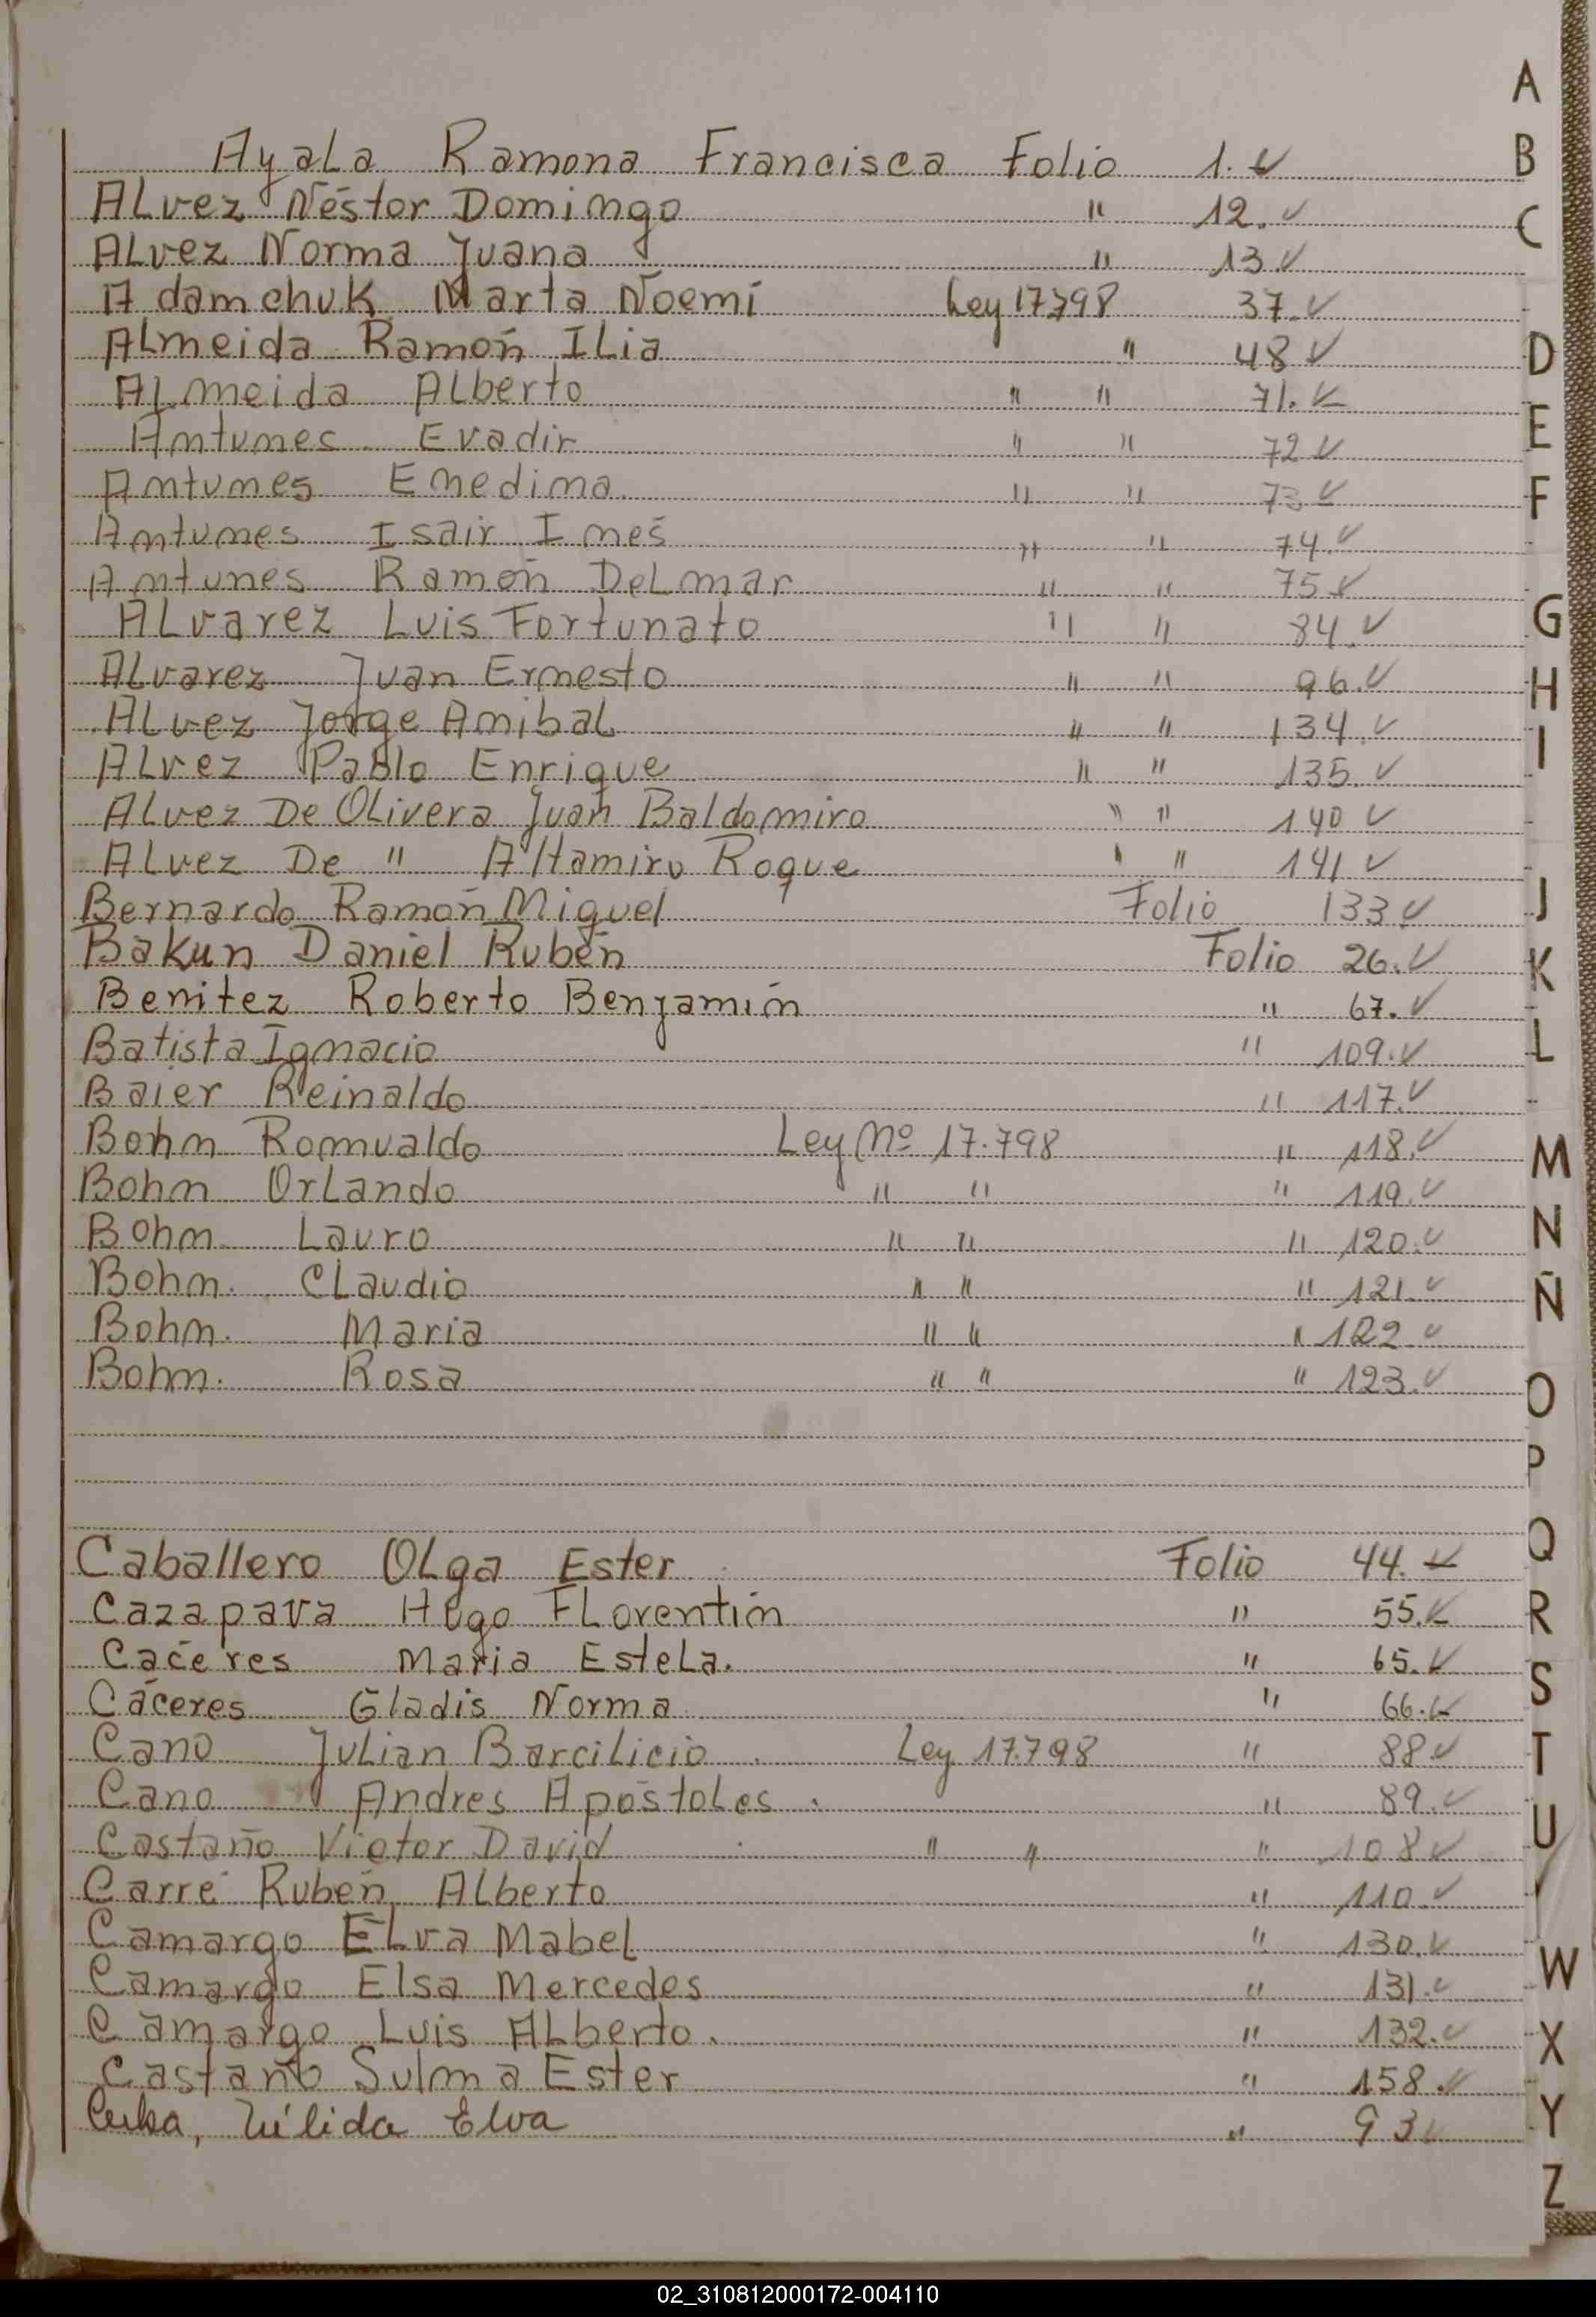 Ayala Ramona Francisca Folio 1. ✓
Alvez Néstor Domingo " 12. ✓
Alvez Norma Juana " 13 ✓
Adamchuk Marta Noemí Ley 17798 37. ✓
Almeida Ramón Ilia " 48 ✓
Almeida Alberto " " 71. ✓
Antunes Evadir " " 72 ✓
Antunes Enedina " " 73 ✓
Antunes Isair Inés " " 74. ✓
Antunes Ramón Delmar " " 75 ✓
Alvarez Luis Fortunato " " 84. ✓
Alvarez Juan Ernesto " " 96. ✓
Alvez Jorge Anibal " " 134. ✓
Alvez Pablo Enrique " " 135. ✓
Alvez De Olivera Juan Baldomiro " " 140 ✓
Alvez De " Altamiro Roque " " 141 ✓
Bernardo Ramón Miguel Folio 133 ✓
Bakun Daniel Rubén Folio 26. ✓
Benitez Roberto Benjamín " 67. ✓
Batista Ignacio " 109. ✓
Baier Reinaldo " 117. ✓
Bohn Romualdo Ley Nº 17.798 " 118. ✓
Bohn Orlando " " " 119. ✓
Bohn Lauro " " " 120. ✓
Bohn. Claudio " " " 121. ✓
Bohn. Maria " " " 122 ✓
Bohn. Rosa " " " 123. ✓
Caballero Olga Ester Folio 44. ✓
Cazapava Hugo Florentín " 55. ✓
Cáceres Maria Estela. " 65. ✓
Cáceres Gladis Norma " 66. ✓
Cano Julian Barcilicio Ley 17.798 " 88 ✓
Cano Andres Apóstoles. " 89. ✓
Castaño Victor David " " " 108 ✓
Carré Rubén Alberto " 110 ✓
Camargo Elva Mabel " 130. ✓
Camargo Elsa Mercedes " 131. ✓
Camargo Luis Alberto. " 132. ✓
Castaño Sulma Ester " 158. ✓
Elva " 93 ✓
A
B
C
D
E
F
G
H
I
J
K
L
M
N
Ñ
O
P
Q
R
S
T
U
V
W
X
Y
Z
02_310812000172-004110